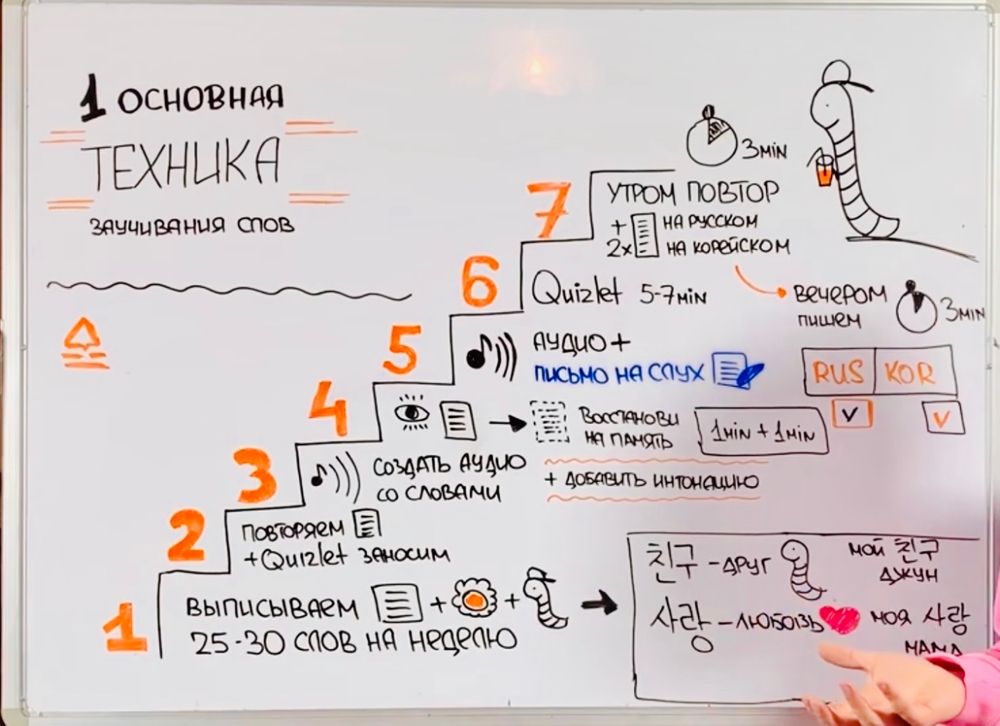 1 ОСНОВНАЯ
ТЕХНИКА
ЗАУЧИВАНИЯ СЛОВ
7
3 min
УТРОМ ПОВТОР
+
2x
НА РУССКОМ
НА КОРЕЙСКОМ
ВЕЧЕРОМ
ПИШЕМ
3 min
RUS KOR
6
Quizlet 5-7 min
5
АУДИО +
ПИСЬМО НА СЛУХ
4
ВОССТАНОВИ
НА ПАМЯТЬ
1 min + 1 min
3
СОЗДАТЬ АУДИО
СО СЛОВАМИ
+ ДОБАВИТЬ ИНТОНАЦИЮ
2
ПОВТОРЯЕМ
+ Quizlet ЗАНОСИМ
1
ВЫПИСЫВАЕМ + +
25-30 СЛОВ НА НЕДЕЛЮ
친구 - ДРУГ
МОЙ 친구
ДЖУН
사랑 - ЛЮБОВЬ
МОЯ 사랑
МАМА